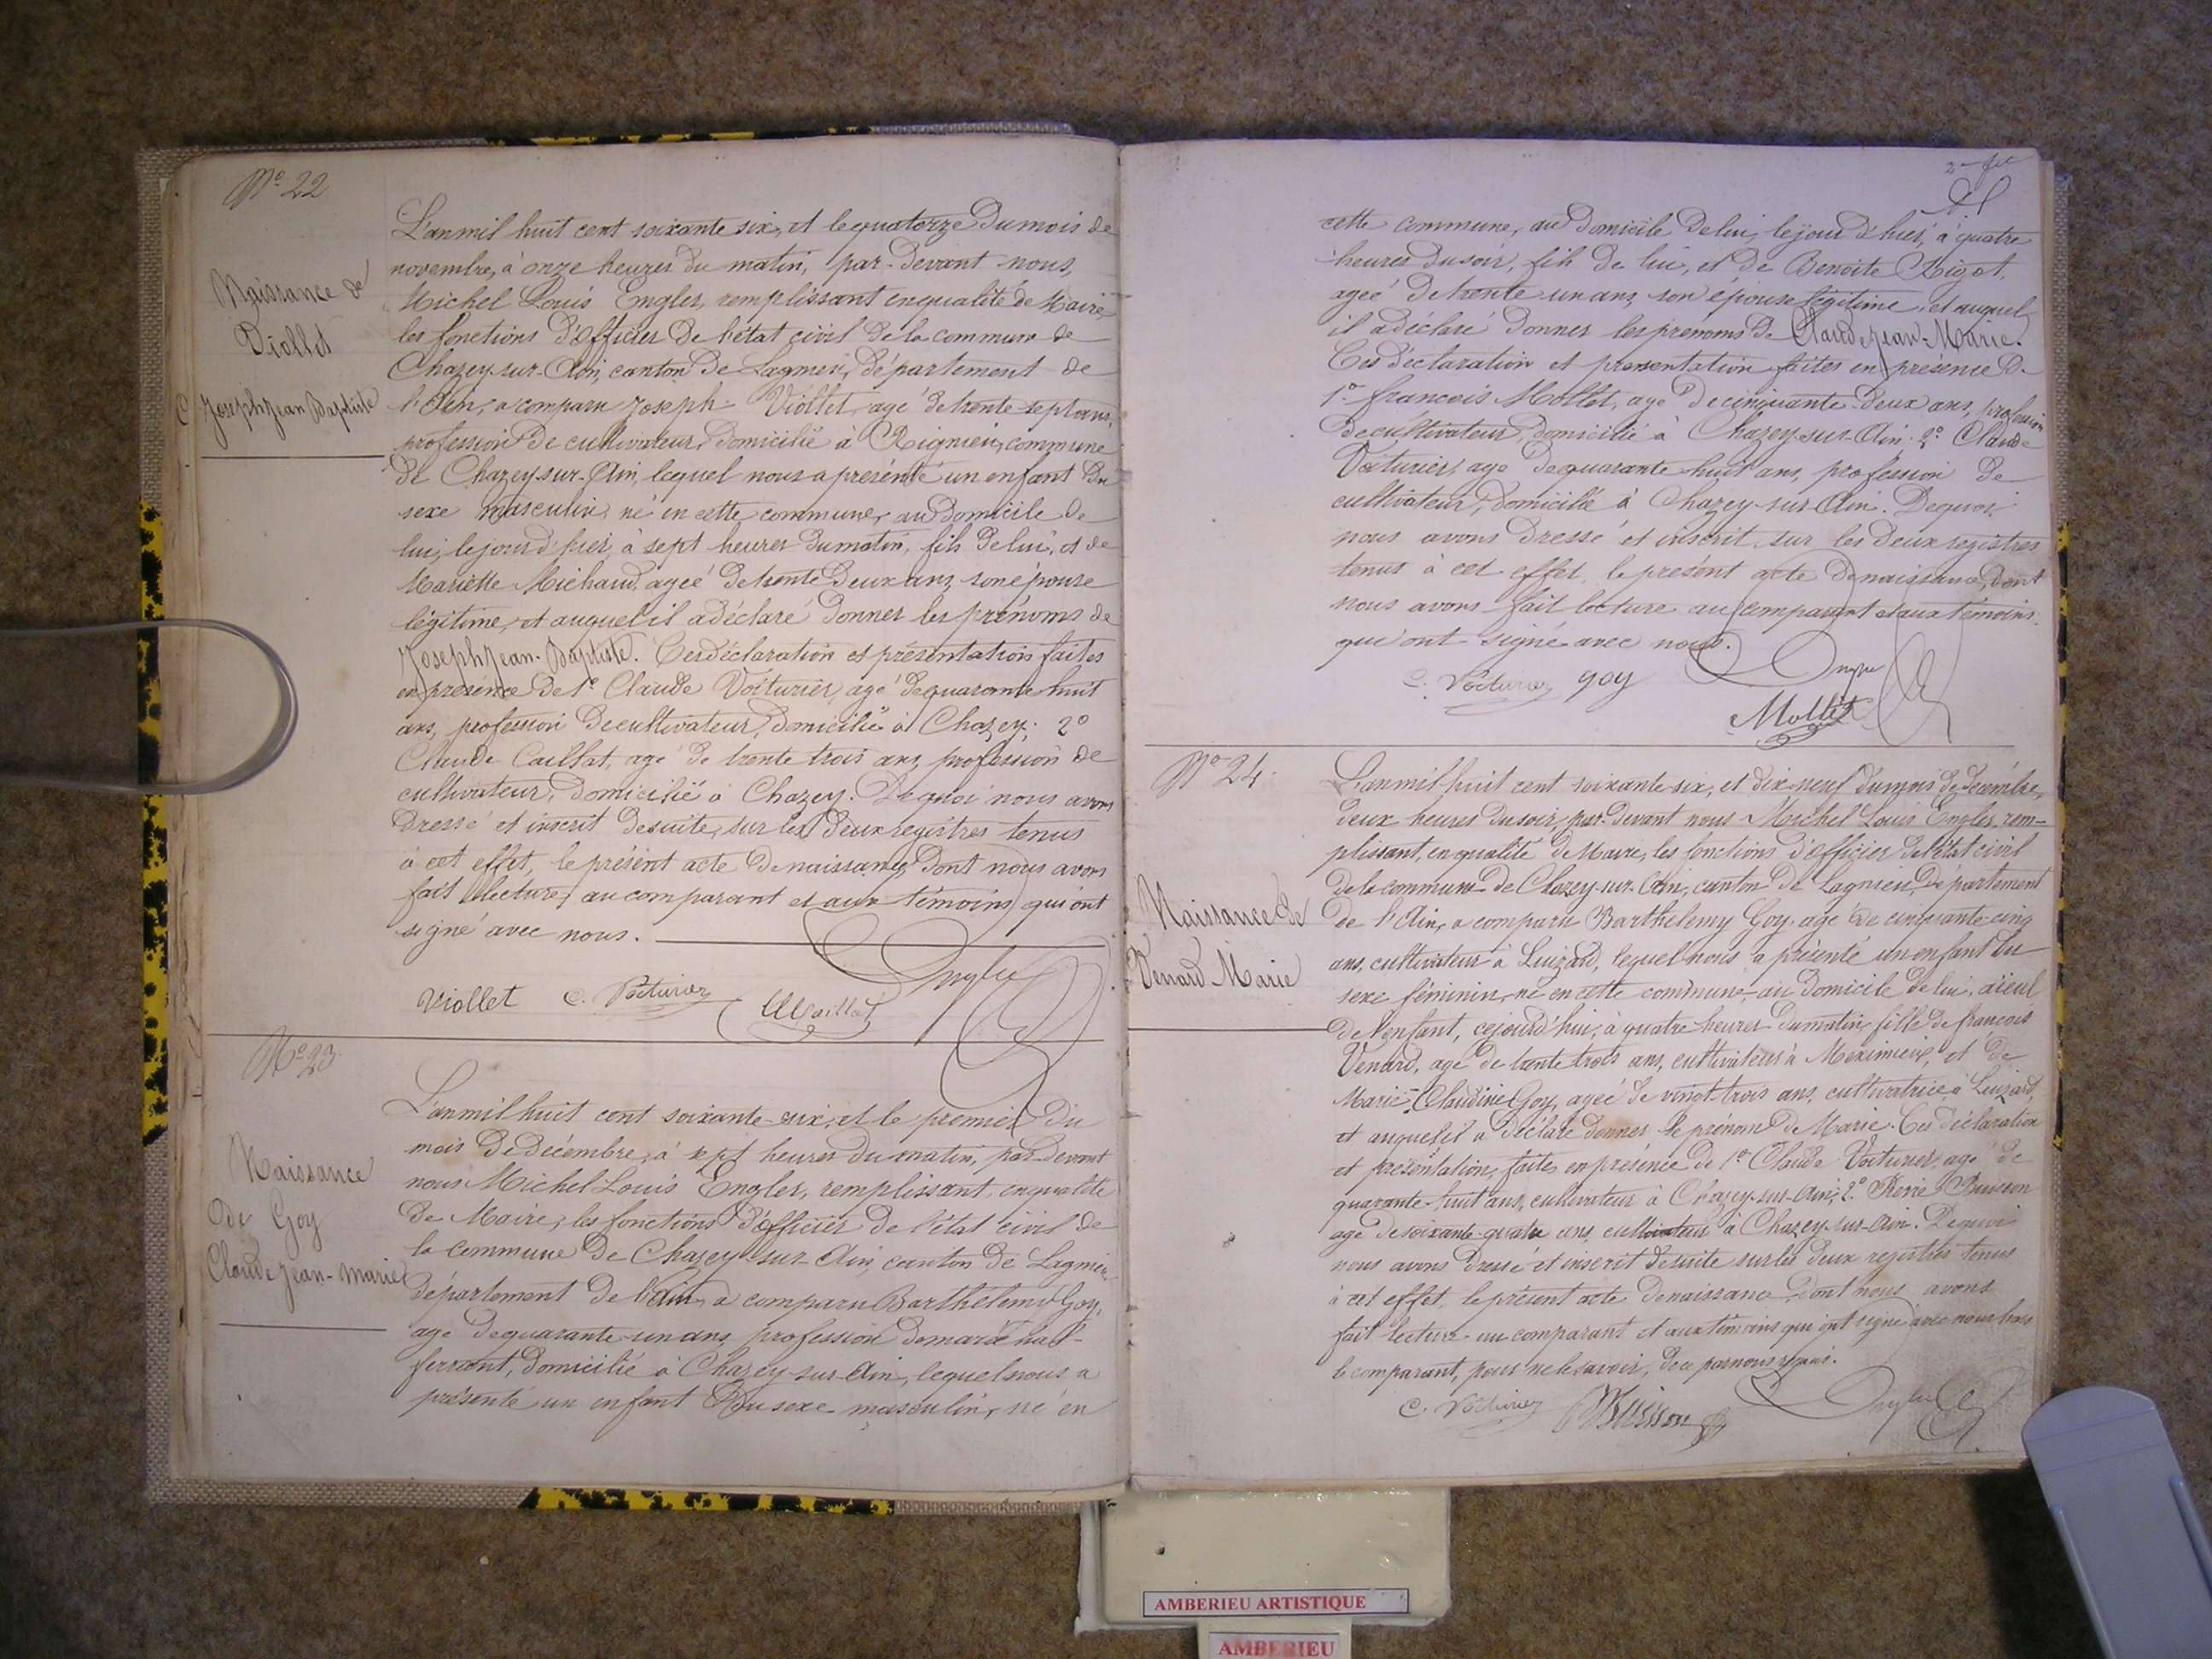 No 22
Naissance de
Viollet
Joseph Jean Baptiste
L'an mil huit cent soixante six, et le quatorze du mois de
novembre, à onze heures du matin, par-devant nous,
Michel Louis Engler, remplissant en qualité de Maire,
les fonctions d'officier de l'état civil de la commune de
Chazey-sur-Ain, canton de Lagnieu, département de
l'Ain, a comparu Joseph Viollet, agé de trente-sept ans,
profession de cultivateur, domicilié à Rignieu, commune
de Chazey-sur-Ain, lequel nous a présenté un enfant du
sexe masculin, né en cette commune, au domicile de
lui, le jour d'hier, à sept heures du matin, fils de lui, et de
Mariette Michaud, agée de trente deux ans, son épouse
légitime, et auquel il a déclaré donner les prénoms de
Joseph Jean-Baptiste. Ces déclaration et présentation faites
en présence de 1o Claude Voiturier, agé de quarante huit
ans, profession de cultivateur, domicilié à Chazey; 2o
Claude Caillat, agé de trente trois ans, profession de
cultivateur, domicilié à Chazey. De quoi nous avons
dressé et inscrit de suite, sur les deux registres tenus
à cet effet, le présent acte de naissance, dont nous avons
fait lecture, au comparant et aux témoins, qui ont
signé avec nous.
Viollet C. Voiturier Caillat Engler
No 23
Naissance
de Goy
Claude Jean-Marie
L'an mil huit cent soixante-six, et le premier du
mois de décembre, à sept heures du matin, par devant
nous Michel Louis Engler, remplissant, en qualité
de Maire, les fonctions d'officier de l'état civil de
la commune de Chazey-sur-Ain, canton de Lagnieu,
département de l'Ain, a comparu Barthélemy Goy,
agé de quarante-un ans, profession de maréchal-
ferrant, domicilié à Chazey-sur-Ain, lequel nous a
présenté un enfant du sexe masculin, né en
cette commune, au domicile de lui, le jour d'hier, à quatre
heures du soir, fils de lui, et de Benoite Rigot,
agée de trente un ans, son épouse légitime, et auquel
il a déclaré donner les prénoms de Claude Jean-Marie.
Ces déclaration et présentation faites en présence de
1o françois Mollet, agé de cinquante-deux ans, profession
de cultivateur, domicilié à Chazey-sur-Ain. 2o Claude
Voiturier, agé de quarante huit ans, profession de
cultivateur, domicilié à Chazey-sur-Ain. De quoi
nous avons dressé et inscrit, sur les deux registres
tenus à cet effet, le présent acte de naissance, dont
nous avons fait lecture au comparant et aux témoins,
qui ont signé avec nous.
C. Voiturier goy Engler
Mollet
No 24
Naissance de
Venard Marie
L'an mil huit cent soixante-six, et dix-neuf du mois de décembre,
deux heures du soir, par-devant nous Michel Louis Engler, rem-
plissant, en qualité de Maire, les fonctions d'officier de l'état civil
de la commune de Chazey-sur-Ain, canton de Lagnieu, département
de l'Ain, a comparu Barthélemy Goy, agé de cinquante-cinq
ans, cultivateur à Luizard, lequel nous a présenté un enfant du
sexe féminin, né en cette commune, au domicile de lui, aïeul
de l'enfant, cejourd'hui, à quatre heures du matin, fille de françois
Venard, agé de trente trois ans, cultivateur à Meximieux, et de
Marie-Claudine Goy, agée de vingt-trois ans, cultivatrice à Luizard,
et auquel il a déclaré donner le prénom de Marie. Ces déclaration
et présentation, faites en présence de 1o Claude Voiturier, agé de
quarante-huit ans, cultivateur à Chazey-sur-Ain; 2o Pierre Buisson
agé de soixante-quatre ans, cultivateur à Chazey-sur-Ain. De quoi
nous avons dressé et inscrit de suite sur les deux registres tenus
à cet effet, le présent acte de naissance dont nous avons
fait lecture au comparant et aux témoins qui ont signé avec nous hors
le comparant, pour ne le savoir, de ce par nous requis.
C. Voiturier Buisson Engler
AMBERIEU ARTISTIQUE
AMBERIEU